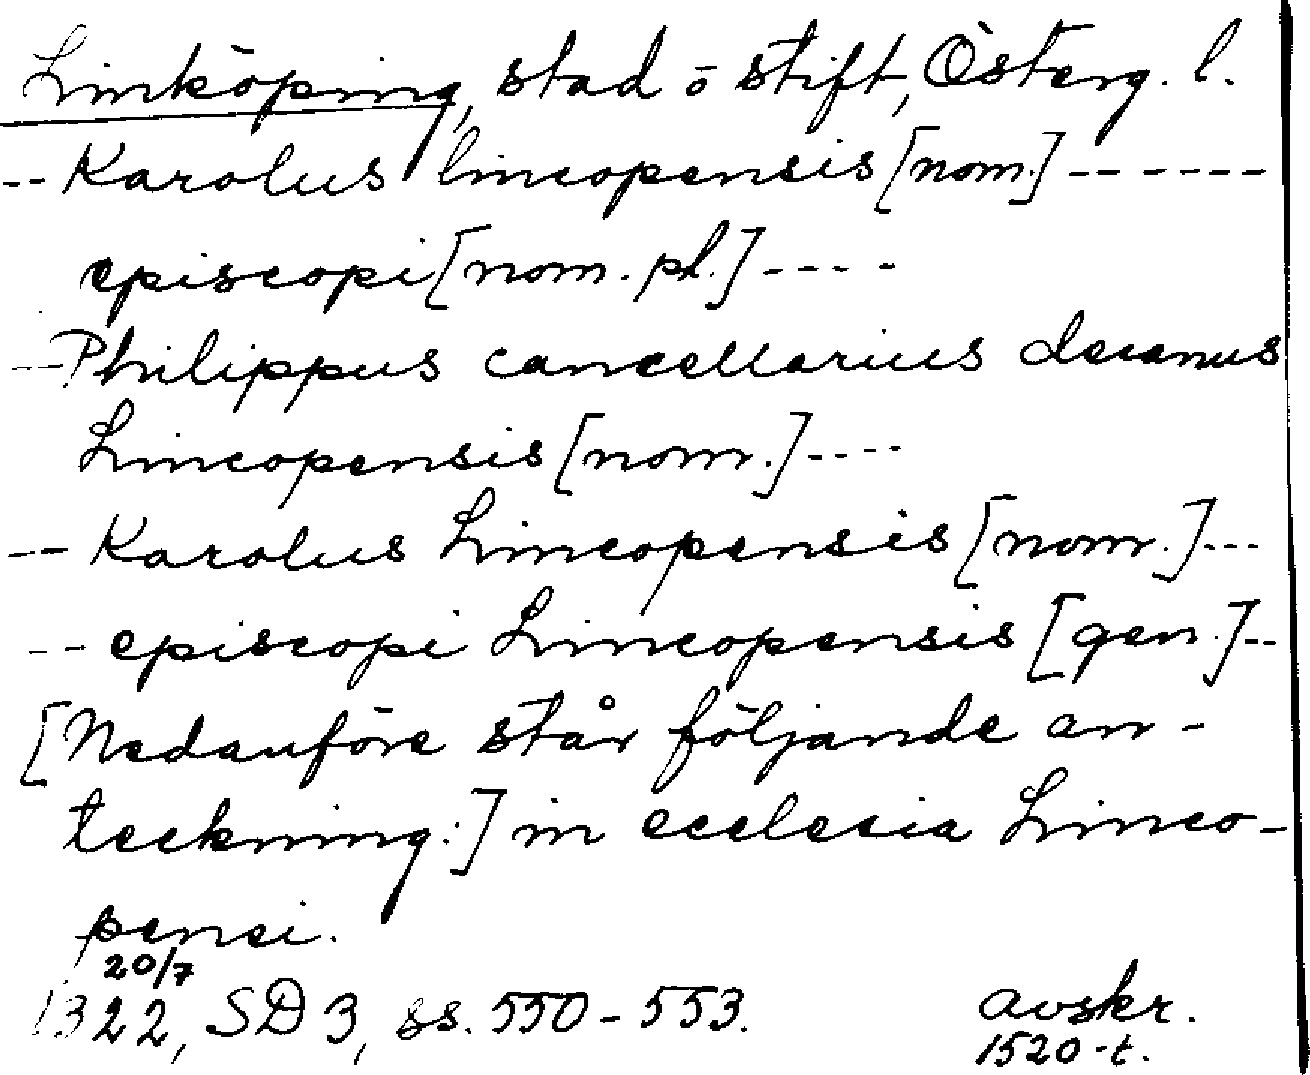 Linköping, stad o stift, Österg. l.
-- Karolus lincopensis [nom.] ------
episcopi [nom. pl.] ----
-- Philippus cancellarius decanus
Lincopensis [nom.] ----
-- Karolus Lincopensis [nom.] ---
-- episcopi Lincopensis [gen.] --
[Nedanföre står följande an-
teckning:] in ecclesia Linco-
pensi.
20/7
1322, SD 3, ss. 550-553. avskr.
1520-t.